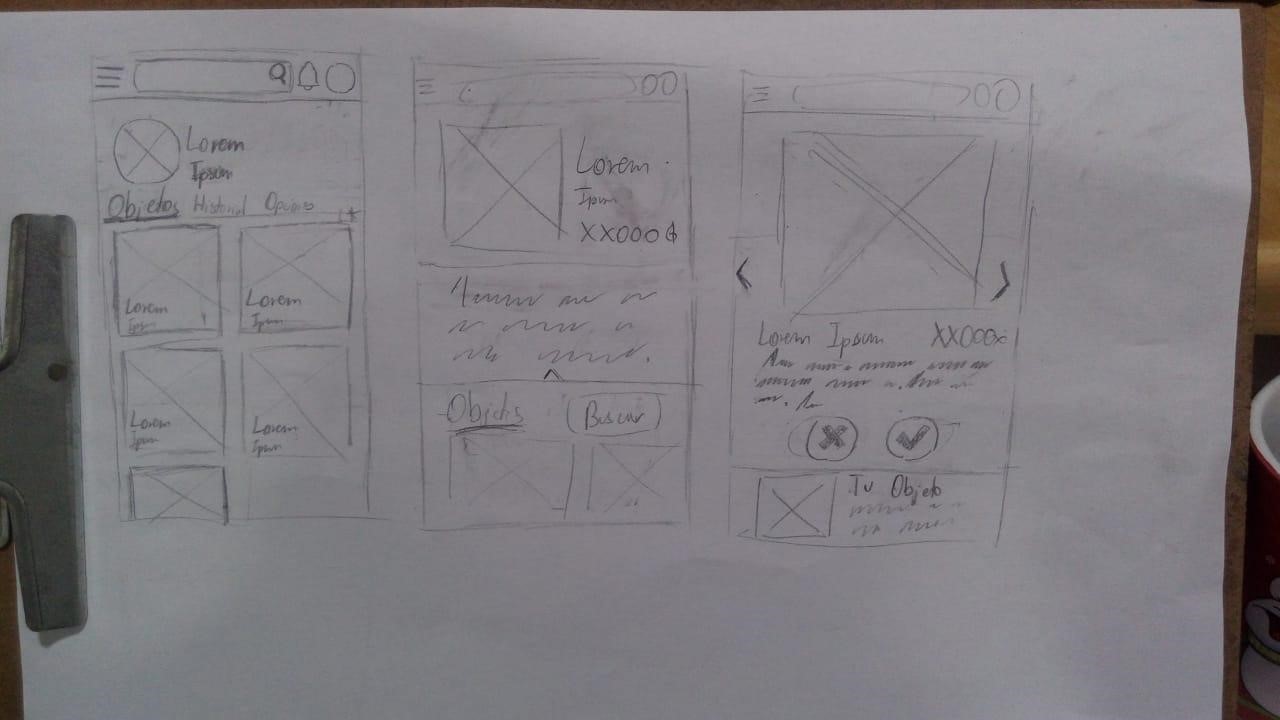 Lorem
Ipsum
Objetos Historial Opiniones
Lorem
Ipsum
Lorem
Ipsum
Lorem
Ipsum
Lorem
Ipsum
Lorem
Ipsum
XX000₡
Objetos
Buscar
Lorem Ipsum XX000
Tu Objeto